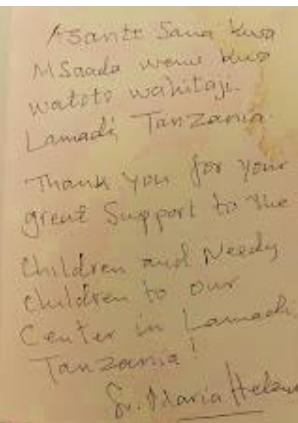 Asante Sana kwa
Msaada wenu kwa
watoto wahitaji.
Lamadi Tanzania.
Thank you for your
great Support to the
Children and Needy
children to our
Center in Lamadi,
Tanzania!
Sr. Maria Helena